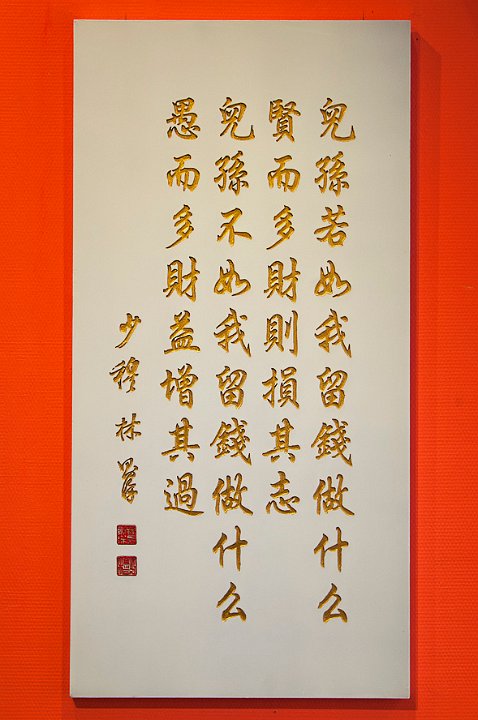 兒孫若如我留錢做什么
賢而多財則損其志
兒孫不如我留錢做什么
愚而多財益增其過
少穆林